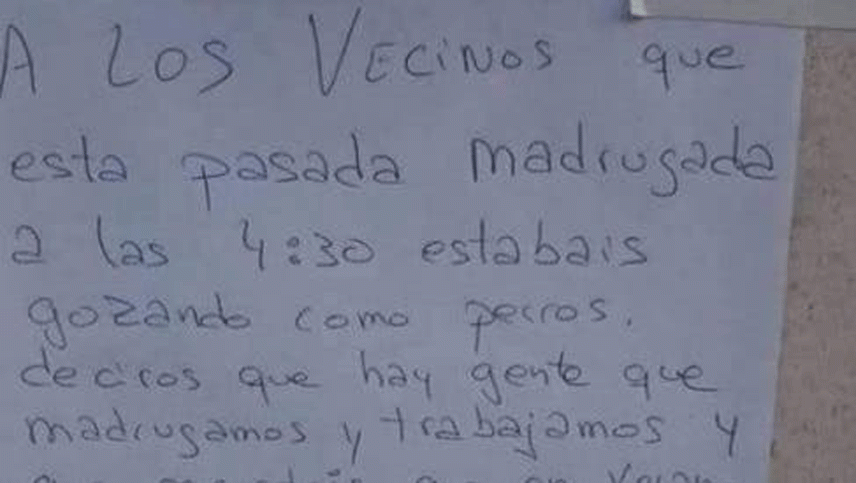 A LOS VECINOS que
esta pasada madrugada
a las 4:30 estabais
gozando como perros.
deciros que hay gente que
madrugamos y trabajamos y
que en